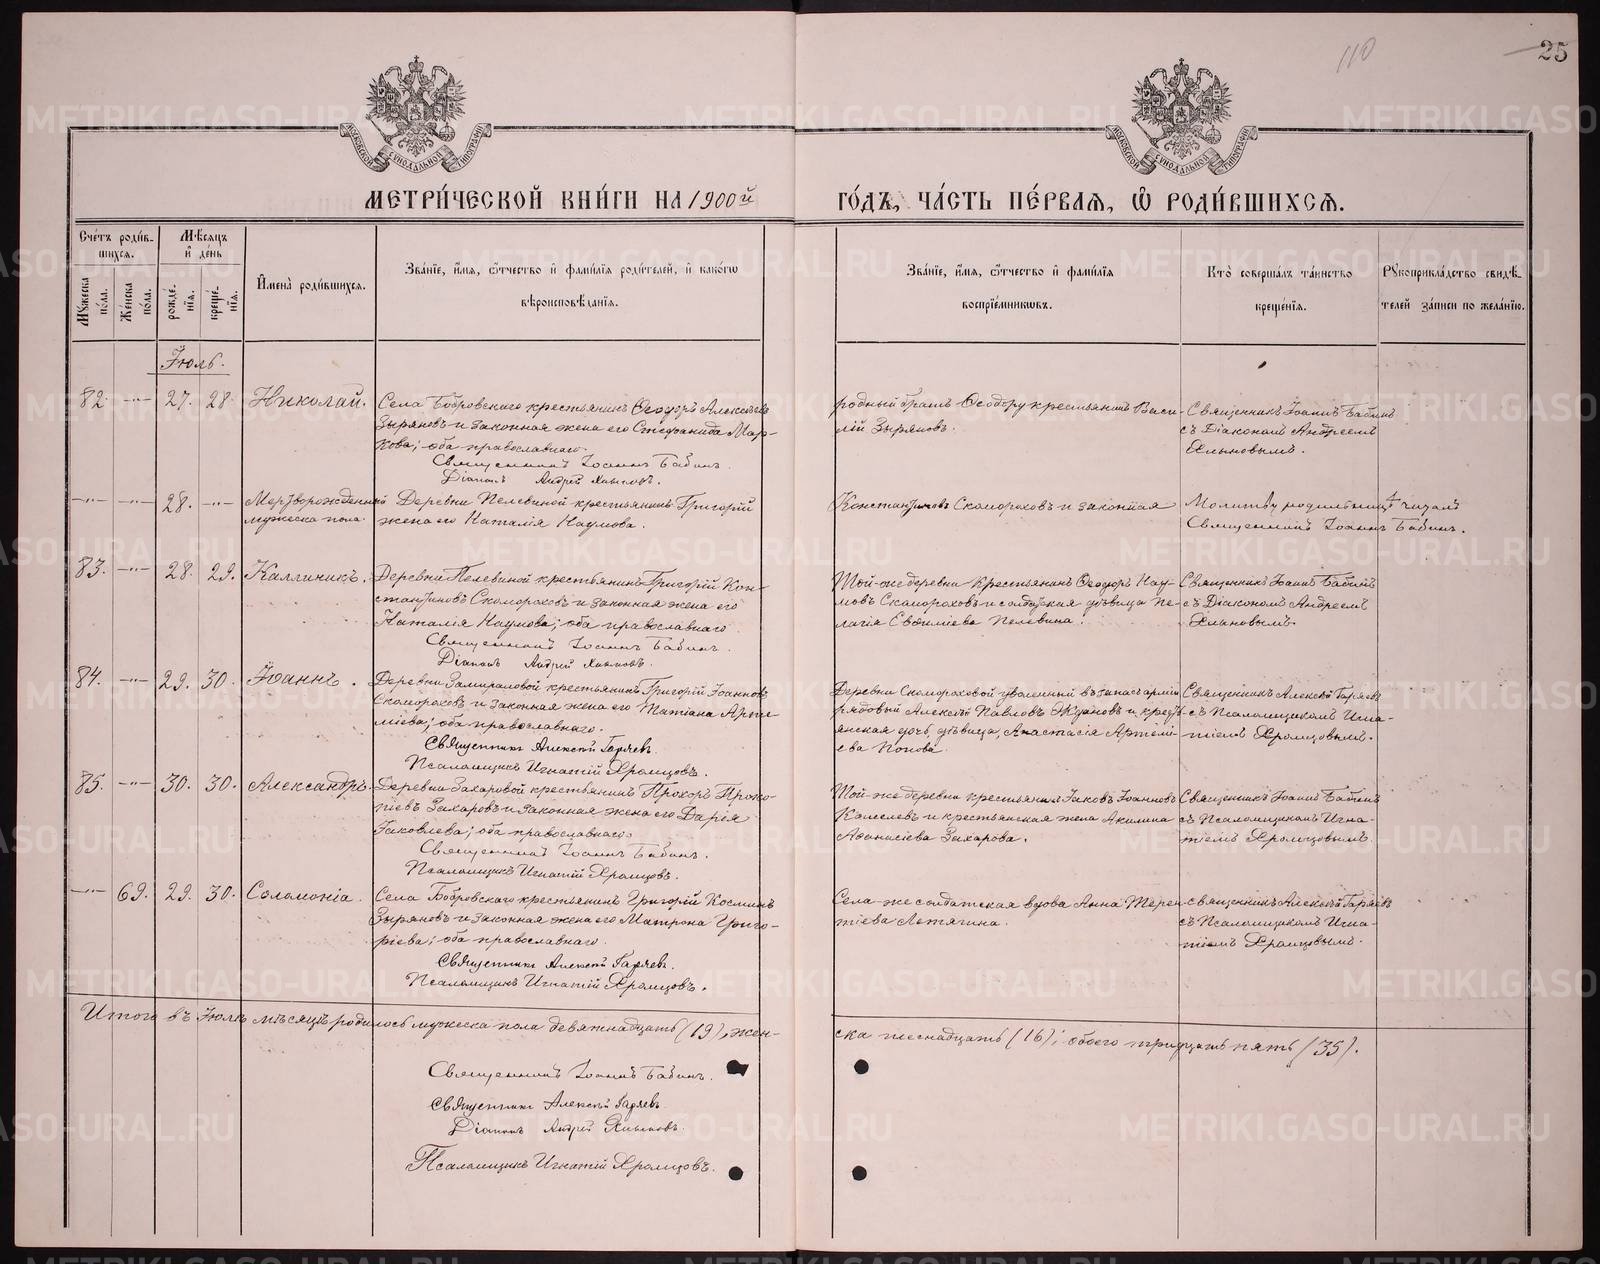 110
25
МОСКОВСКОЙ СѴНОДАЛЬНОЙ ТИПОГРАФІИ
МОСКОВСКОЙ СѴНОДАЛЬНОЙ ТИПОГРАФІИ
МЕТРИ́ЧЕСКОЙ КНИ́ГИ НА 1900й
ГО́ДЪ, ЧА́СТЬ ПЕ́РВАЯ, Ѡ РОДИ́ВШИХСЯ.
Сче́тъ роди́в-
шихся.
Му́жеска по́ла.
Же́нска по́ла.
Мѣ́сяцъ
и҆ де́нь
рожде́нїя.
креще́нїя.
И҆мена̀ роди́вшихся.
Зва́нїе, и҆́мя, ѻ҆́тчество и҆ фами́лїя роди́телей, и҆ како́гѡ
вѣроисповѣ́данїя.
Зва́нїе, и҆́мя, ѻ҆́тчество и҆ фами́лїя
воспрїе́мникѡвъ.
Кто̀ соверша́лъ та́инство
креще́нїя.
Рꙋкоприкла́дство свидѣ́-
телей за́писи по жела́нїю.
Іюль.
82. —"— 27. 28. Николай.
Села Бобровскаго крестьянинъ Ѳеодоръ Алексѣевъ
Зыряновъ и законная жена его Стефанида Мар-
кова; оба православнаго.
Священникъ Іоаннъ Бабинъ.
Діаконъ Андрей Хлыновъ.
родный братъ Ѳеодору крестьянинъ Васи-
лій Зыряновъ.
Священникъ Іоаннъ Бабинъ
съ Діакономъ Андреемъ
Хлыновымъ.
—"— —"— 28. —"— Мертворожденный
мужеска пола.
Деревни Пелевиной крестьянинъ Григорій
жена его Наталія Наумова.
Константиновъ Скомороховъ и законная
Молитву родильницѣ читалъ
Священникъ Іоаннъ Бабинъ.
83. —"— 28. 29. Каллиникъ.
Деревни Пелевиной крестьянинъ Григорій Кон-
стантиновъ Скомороховъ и законная жена его
Наталія Наумова; оба православнаго
Священникъ Іоаннъ Бабинъ.
Діаконъ Андрей Хлыновъ.
Той-же деревни крестьянинъ Ѳеодоръ Нау-
мовъ Скомороховъ и солдатская дѣвица Пе-
лагія Евѳиміева Пелевина.
Священникъ Іоаннъ Бабинъ
съ Діакономъ Андреемъ
Хлыновымъ.
84. —"— 29. 30. Іоаннъ.
Деревни Замираловой крестьянинъ Григорій Іоанновъ
Скомороховъ и законная жена его Татіана Арте-
міева; оба православнаго.
Священникъ Алексѣй Гаряевъ.
Псаломщикъ Игнатій Хромцовъ.
Деревни Скомороховой уволенный въ запасъ арміи
рядовый Алексѣй Павловъ Ждановъ и кресть-
янская дочь, дѣвица, Анастасія Артемі-
ева Попова.
Священникъ Алексѣй Гаряевъ
съ Псаломщикомъ Игна-
тіемъ Хромцовымъ.
85. —"— 30. 30. Александръ.
Деревни Захаровой крестьянинъ Прохоръ Проко-
піевъ Захаровъ и законная жена его Дарія
Іаковлева; оба православнаго
Священникъ Іоаннъ Бабинъ.
Псаломщикъ Игнатій Хромцовъ.
Той-же деревни крестьянинъ Іаковъ Іоанновъ
и крестьянская жена Акилина
Аѳанасіева Захарова.
Священникъ Іоаннъ Бабинъ
съ Псаломщикомъ Игна-
тіемъ Хромцовымъ.
—"— 69. 29. 30. Соломонія.
Села Бобровскаго крестьянинъ Григорій Косминъ
Зыряновъ и законная жена его Матрона Григо-
ріева; оба православнаго.
Священникъ Алексѣй Гаряевъ.
Псаломщикъ Игнатій Хромцовъ.
Села-же солдатская вдова Анна Терен-
тіева Летягина.
Священникъ Алексѣй Гаряевъ
съ Псаломщикомъ Игна-
тіемъ Хромцовымъ.
Итого въ Іюлѣ мѣсяцѣ родилось мужеска пола девятнадцать (19), жен-
ска шеснадцать (16); обоего тридцать пять (35).
Священникъ Іоаннъ Бабинъ.
Священникъ Алексѣй Гаряевъ.
Діаконъ Андрей Хлыновъ.
Псаломщикъ Игнатій Хромцовъ.
METRIKI.GASO-URAL.RU